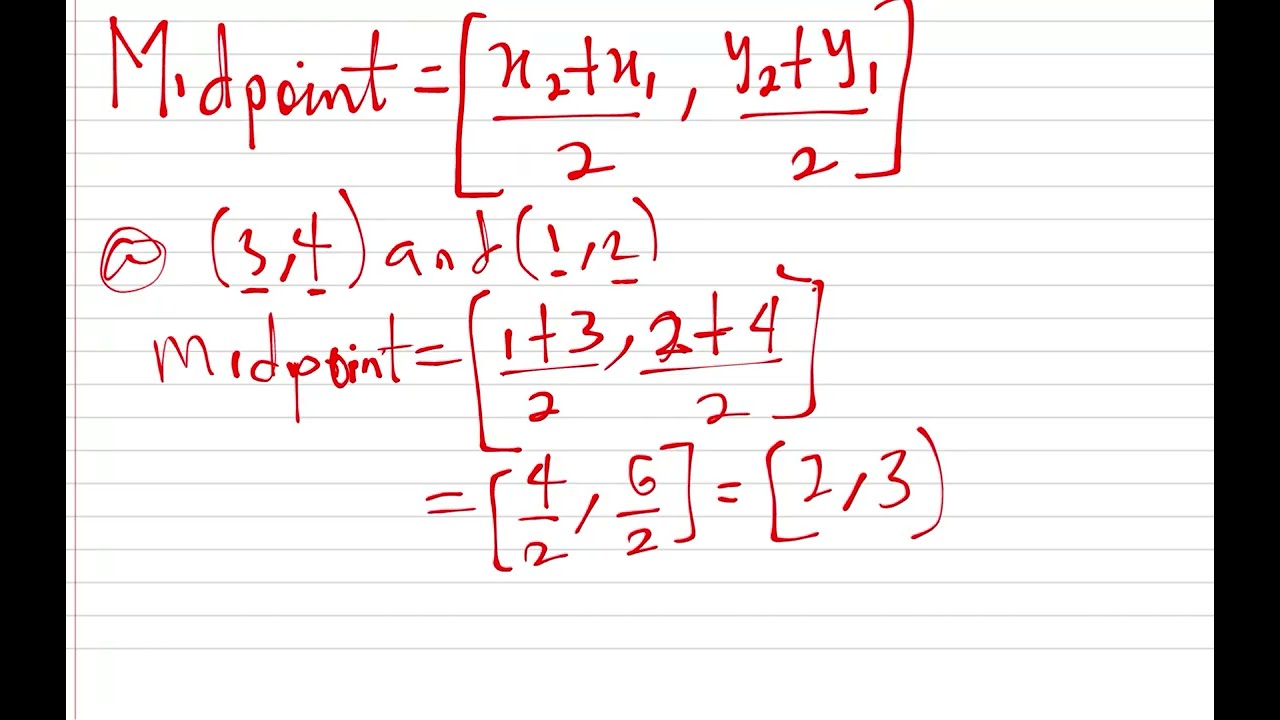 Midpoint = [x₂+x₁/2, y₂+y₁/2]
ⓐ (3,4) and (1,2)
midpoint = [1+3/2, 2+4/2]
= [4/2, 6/2] = [2,3)